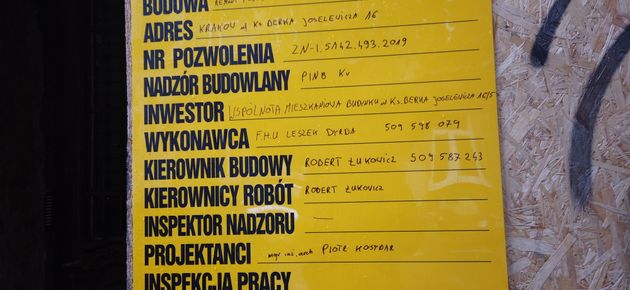 BUDOWA
ADRES KRAKÓW ul Ks BERKA JOSELEWICZA 16
NR POZWOLENIA ZN-I.5142.493.2019
NADZÓR BUDOWLANY PINB Kr
INWESTOR WSPÓLNOTA MIESZKANIOWA BUDYNKU ul Ks. BERKA JOSELEWICZA 16/5
WYKONAWCA F.H.U LESZEK DYRDA 509 598 079
KIEROWNIK BUDOWY ROBERT ŁUKOWICZ 509 587 243
KIEROWNICY ROBÓT ROBERT ŁUKOWICZ
INSPEKTOR NADZORU —
PROJEKTANCI mgr inż. arch PIOTR
INSPEKCJA PRACY